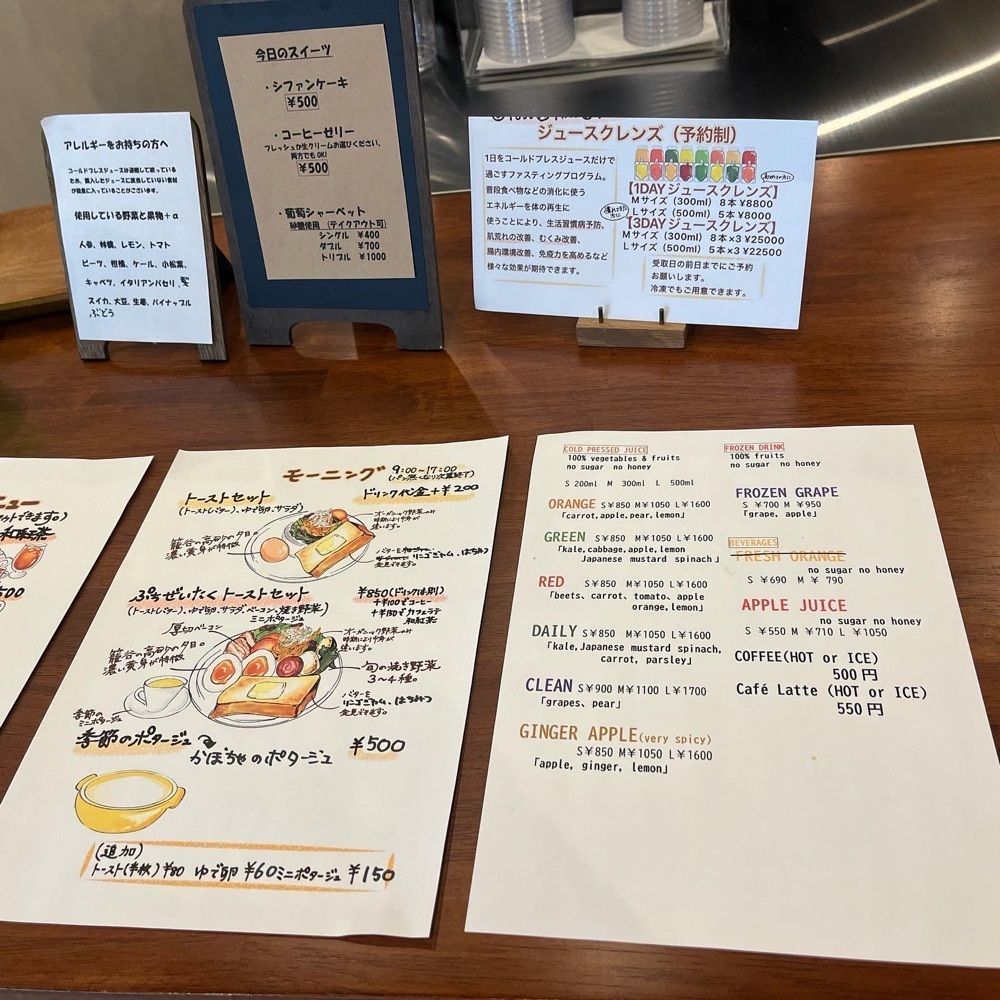 アレルギーをお持ちの方へ
コールドプレスジュースは連続して絞っている
使用している野菜と果物+α
人参、林檎、レモン、トマト
ビーツ、柑橘、ケール、小松菜、
キャベツ、イタリアンパセリ、梨
スイカ、大豆、生姜、パイナップル
ぶどう
今日のスイーツ
・シファンケーキ
¥500
・コーヒーゼリー
フレッシュか生クリームお選びください。
両方でもOK!
¥500
・葡萄シャーベット
砂糖使用 (テイクアウト可)
シングル ¥400
ダブル ¥700
トリプル ¥1000
ジュースクレンズ(予約制)
1日をコールドプレスジュースだけで
過ごすファスティングプログラム。
普段食べ物などの消化に使う
エネルギーを体の再生に
使うことにより、生活習慣病予防、
肌荒れの改善、むくみ改善、
腸内環境改善、免疫力を高めるなど
様々な効果が期待できます。
初めての方に
【1DAYジュースクレンズ】
Mサイズ(300ml) 8本 ¥8800
Lサイズ(500ml) 5本 ¥8000
慣れてきた方に
【3DAYジュースクレンズ】
Mサイズ(300ml) 8本×3 ¥25000
Lサイズ(500ml) 5本×3 ¥22500
受取日の前日までにご予約
お願いします。
冷凍でもご用意できます。
ニュー
できます。)
和紅茶
500
モーニング 9:00~17:00
(パン無くなり次第終了)
トーストセット ドリンク代金+¥200
(トースト(バター)、ゆで卵、サラダ)
龍谷の高砂の夕日。
濃い黄身が特徴
オーガニック野菜のみ
時期により内容が
違います。
バターを
リンゴジャム、はちみつ
変更できます。
ぷちぜいたくトーストセット ¥850(ドリンクは別)
(トースト(バター)、ゆで卵、サラダ、ベーコン、焼き野菜
ミニポタージュ)
+¥100でコーヒー
+¥150でカフェラテ
和紅茶
厚切ベーコン
龍谷の高砂の夕日。
濃い黄身が特徴
オーガニック野菜のみ
時期により内容が
違います。
旬の焼き野菜
3~4種。
バターを
リンゴジャム、はちみつ
変更できます。
季節の
ミニポタージュ
季節のポタージュ ¥500
かぼちゃのポタージュ
(追加)
トースト(半枚)¥80 ゆで卵 ¥60 ミニポタージュ ¥150
COLD PRESSED JUICE
100% vegetables & fruits
no sugar no honey
S 200ml M 300ml L 500ml
ORANGE S¥850 M¥1050 L¥1600
「carrot,apple,pear,lemon」
GREEN S¥850 M¥1050 L¥1600
「kale,cabbage,apple,lemon
Japanese mustard spinach」
RED S¥850 M¥1050 L¥1600
「beets, carrot, tomato, apple
orange,lemon」
DAILY S¥850 M¥1050 L¥1600
「kale,Japanese mustard spinach,
carrot, parsley」
CLEAN S¥900 M¥1100 L¥1700
「grapes, pear」
GINGER APPLE(very spicy)
S¥850 M¥1050 L¥1600
「apple, ginger, lemon」
FROZEN DRINK
100% fruits
no sugar no honey
FROZEN GRAPE
S ¥700 M ¥950
「grape, apple」
BEVERAGES
FRESH ORANGE
no sugar no honey
S ¥690 M ¥ 790
APPLE JUICE
no sugar no honey
S ¥550 M ¥710 L ¥1050
COFFEE(HOT or ICE)
500円
Café Latte (HOT or ICE)
550円